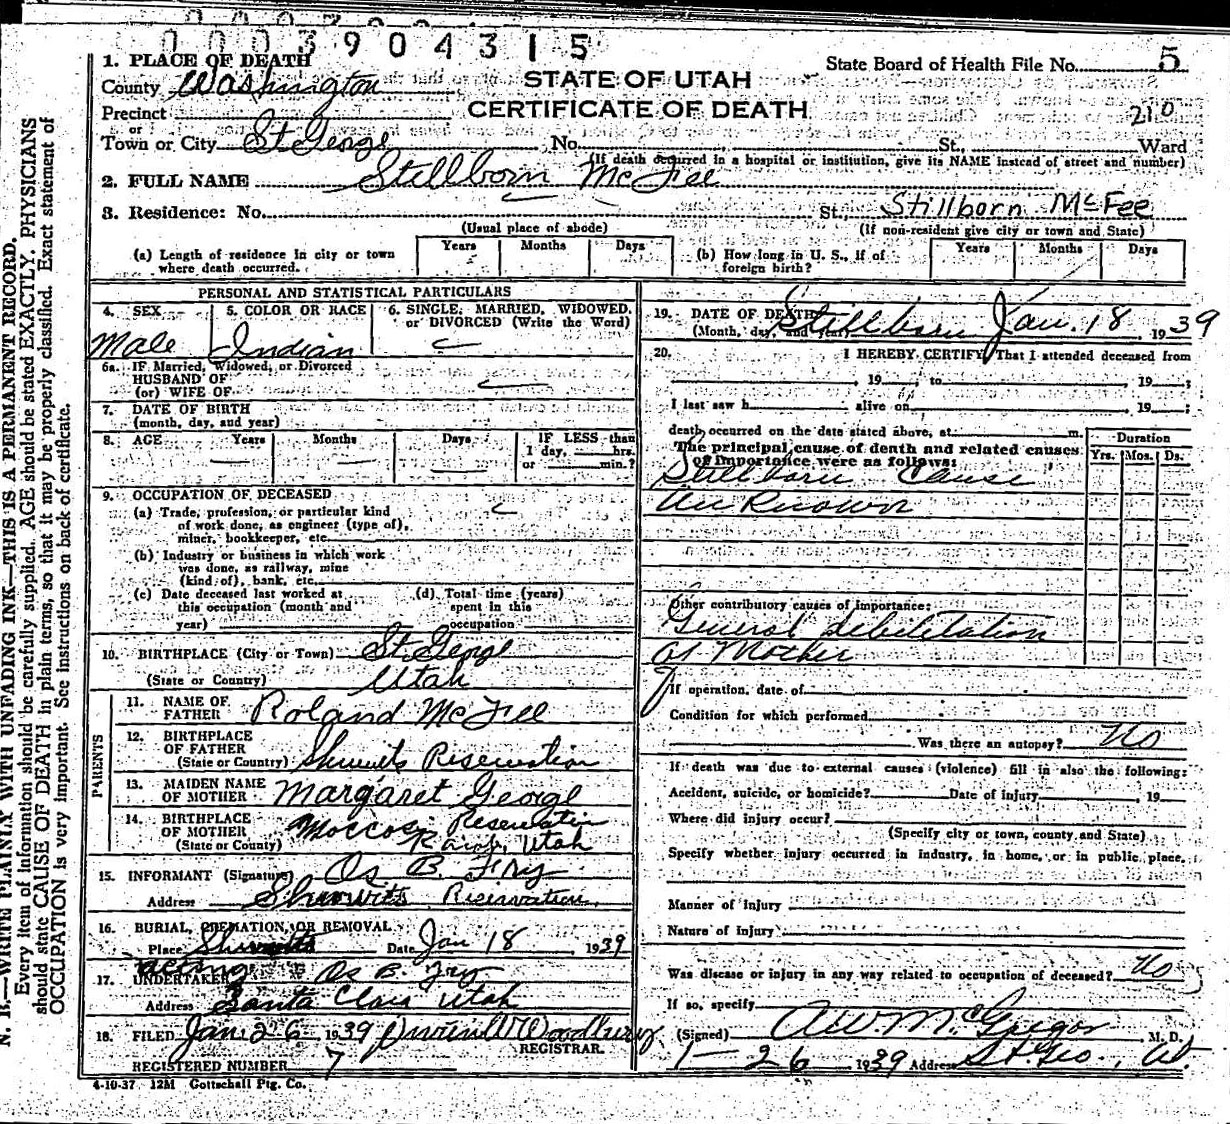 0003904315
1. PLACE OF DEATH
County Washington
STATE OF UTAH
CERTIFICATE OF DEATH
State Board of Health File No. 5
210
Precinct
or
Town or City St George No. St., Ward
(If death occurred in a hospital or institution, give its NAME instead of street and number)
2. FULL NAME Stillborn McFee
3. Residence: No. St., Stillborn McFee
(Usual place of abode) (If non-resident give city or town and State)
(a) Length of residence in city or town where death occurred. Years Months Days
(b) How long in U. S., if of foreign birth? Years Months Days
PERSONAL AND STATISTICAL PARTICULARS
4. SEX Male
5. COLOR OR RACE Indian
6. SINGLE, MARRIED, WIDOWED, or DIVORCED (Write the Word)
6a. IF Married, Widowed, or Divorced
HUSBAND OF
(or) WIFE OF
7. DATE OF BIRTH
(month, day, and year)
8. AGE Years Months Days IF LESS than
1 day, hrs.
or min.?
9. OCCUPATION OF DECEASED
(a) Trade, profession, or particular kind
of work done, as engineer (type of),
miner, bookkeeper, etc.
(b) Industry or business in which work
was done, as railway, mine
(kind of), bank, etc.
(c) Date deceased last worked at
this occupation (month and
year)
(d) Total time (years)
spent in this
occupation
10. BIRTHPLACE (City or Town) St. George
(State or Country) Utah
PARENTS
11. NAME OF
FATHER Roland McFee
12. BIRTHPLACE
OF FATHER
(State or Country) Shivwits Reservation
13. MAIDEN NAME
OF MOTHER Margaret George
14. BIRTHPLACE
OF MOTHER
(State or Country) Reservation
Utah
15. INFORMANT (Signature) Os B. Fry
Address Shivwits Reservation
16. BURIAL, CREMATION, OR REMOVAL
Place Shivwits Date Jan 18 1939
17. acting
UNDERTAKER Os B Fry
Address Santa Clara Utah
18. FILED Jan 26 1939 Woodbury
REGISTRAR.
REGISTERED NUMBER 7
4-10-37 12M Gottschall Ptg. Co.
19. DATE OF DEATH
(Month, day, and year) Stillborn Jan. 18, 1939
20. I HEREBY CERTIFY, That I attended deceased from
, 19 to , 19 ;
I last saw h alive on , 19 ;
death occurred on the date stated above, at m.
The principal cause of death and related causes
of importance were as follows:
Duration
Yrs. Mos. Ds.
Stillborn Cause
unknown
Other contributory causes of importance:
General debilitation
of Mother
If operation, date of
Condition for which performed
Was there an autopsy? No
If death was due to external causes (violence) fill in also the following:
Accident, suicide, or homicide? Date of injury , 19
Where did injury occur?
(Specify city or town, county and State)
Specify whether injury occurred in industry, in home, or in public place.
Manner of injury
Nature of injury
Was disease or injury in any way related to occupation of deceased? No
If so, specify
(Signed) A W. McGregor M. D.
1-26 1939 Address St. Geo., Ut.
N. B.—WRITE PLAINLY WITH UNFADING INK—THIS IS A PERMANENT RECORD.
Every item of information should be carefully supplied. AGE should be stated EXACTLY. PHYSICIANS
should state CAUSE OF DEATH in plain terms, so that it may be properly classified. Exact statement of
OCCUPATION is very important. See instructions on back of certificate.